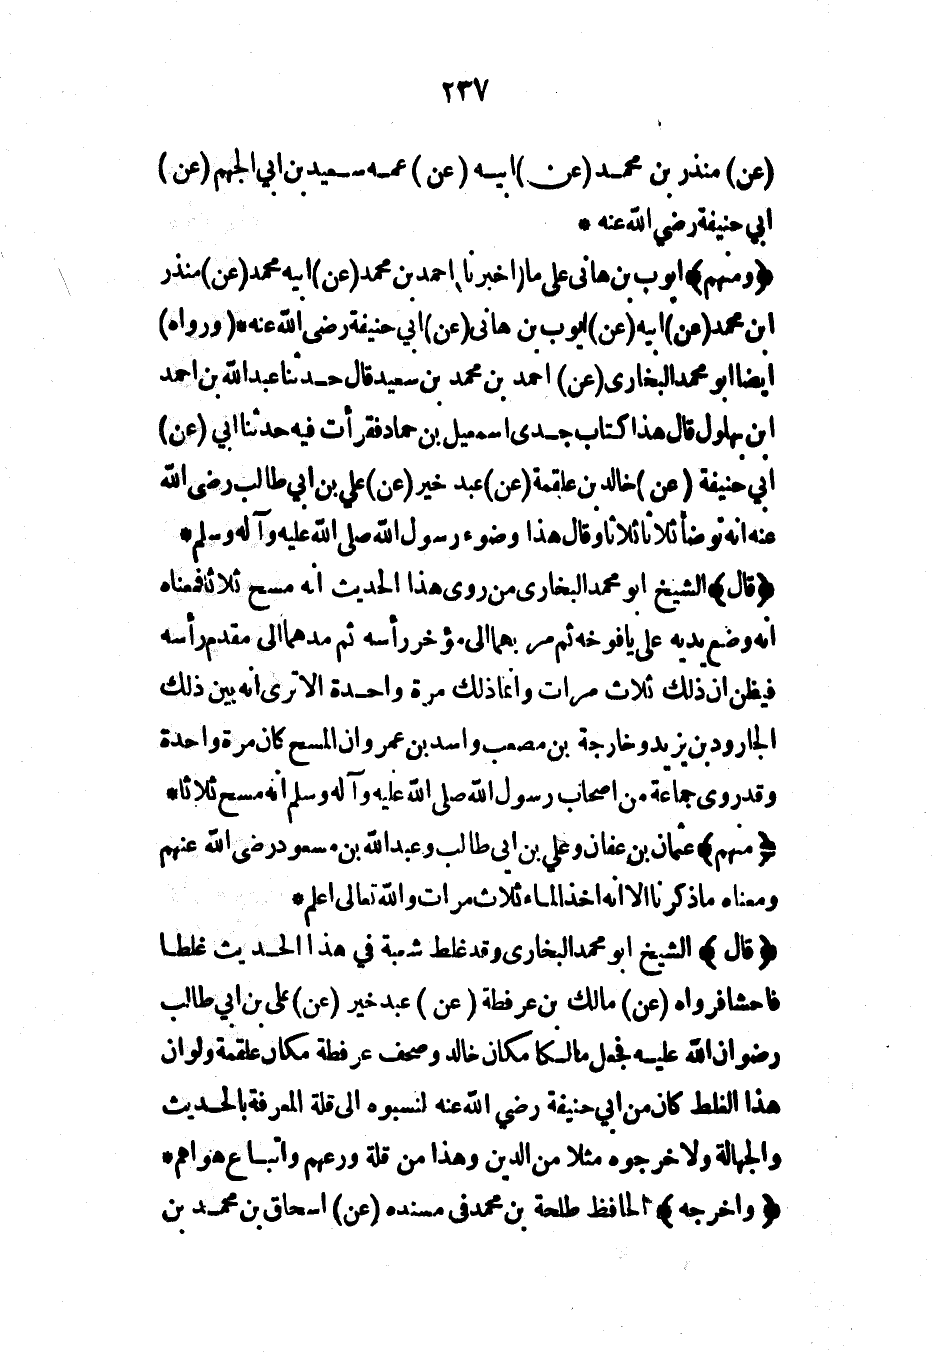 ٢٣٧
(عن) منذر بن محمد (عن) ابيه (عن) عمه سعيد بن ابي الجهم (عن)
ابي حنيفة رضي الله عنه *
﴿ومنهم﴾ ايوب بن هانى على ما اخبرنا احمد بن محمد (عن) ابيه محمد (عن) منذر
ابن محمد (عن) ابيه (عن) ايوب بن هانى (عن) ابي حنيفة رضى الله عنه * (ورواه)
ايضا ابو محمد البخارى (عن) احمد بن محمد بن سعيد قال حدثنا عبد الله بن احمد
ابن بهلول قال هذا كتاب جدى اسمعيل بن حماد فقرأت فيه حدثنا ابي (عن)
ابي حنيفة (عن) خالد بن علقمة (عن) عبد خير (عن) علي بن ابي طالب رضى الله
عنه انه توضأ ثلاثا ثلاثا وقال هذا وضوء رسول الله صلى الله عليه وآله وسلم *
﴿قال﴾ الشيخ ابو محمد البخارى من روى هذا الحديث انه مسح ثلاثا فمعناه
انه وضع يديه على يافوخه ثم مر بهما الى مؤخر رأسه ثم مدهما الى مقدم رأسه
فيظن ان ذلك ثلاث مرات وانما ذلك مرة واحدة الا ترى انه بين ذلك
الجارود بن يزيد وخارجة بن مصعب واسد بن عمر وان المسح كان مرة واحدة
وقد روى جماعة من اصحاب رسول الله صلى الله عليه وآله وسلم انه مسح ثلاثا *
﴿منهم﴾ عثمان بن عفان وعلي بن ابى طالب وعبد الله بن مسعود رضى الله عنهم
ومعناه ما ذكرنا الا انه اخذ الماء ثلاث مرات والله تعالى اعلم *
﴿قال﴾ الشيخ ابو محمد البخارى وقد غلط شعبة في هذا الحديث غلطا
فاحشا فرواه (عن) مالك بن عرفطة (عن) عبد خير (عن) على بن ابي طالب
رضوان الله عليه فجعل مالكا مكان خالد وصحف عرفطة مكان علقمة ولو ان
هذا الغلط كان من ابي حنيفة رضي الله عنه لنسبوه الى قلة المعرفة بالحديث
والجهالة ولاخرجوه مثلا من الدين وهذا من قلة ورعهم واتباع هواهم *
﴿واخرجه﴾ الحافظ طلحة بن محمد فى مسنده (عن) اسحاق بن محمد بن